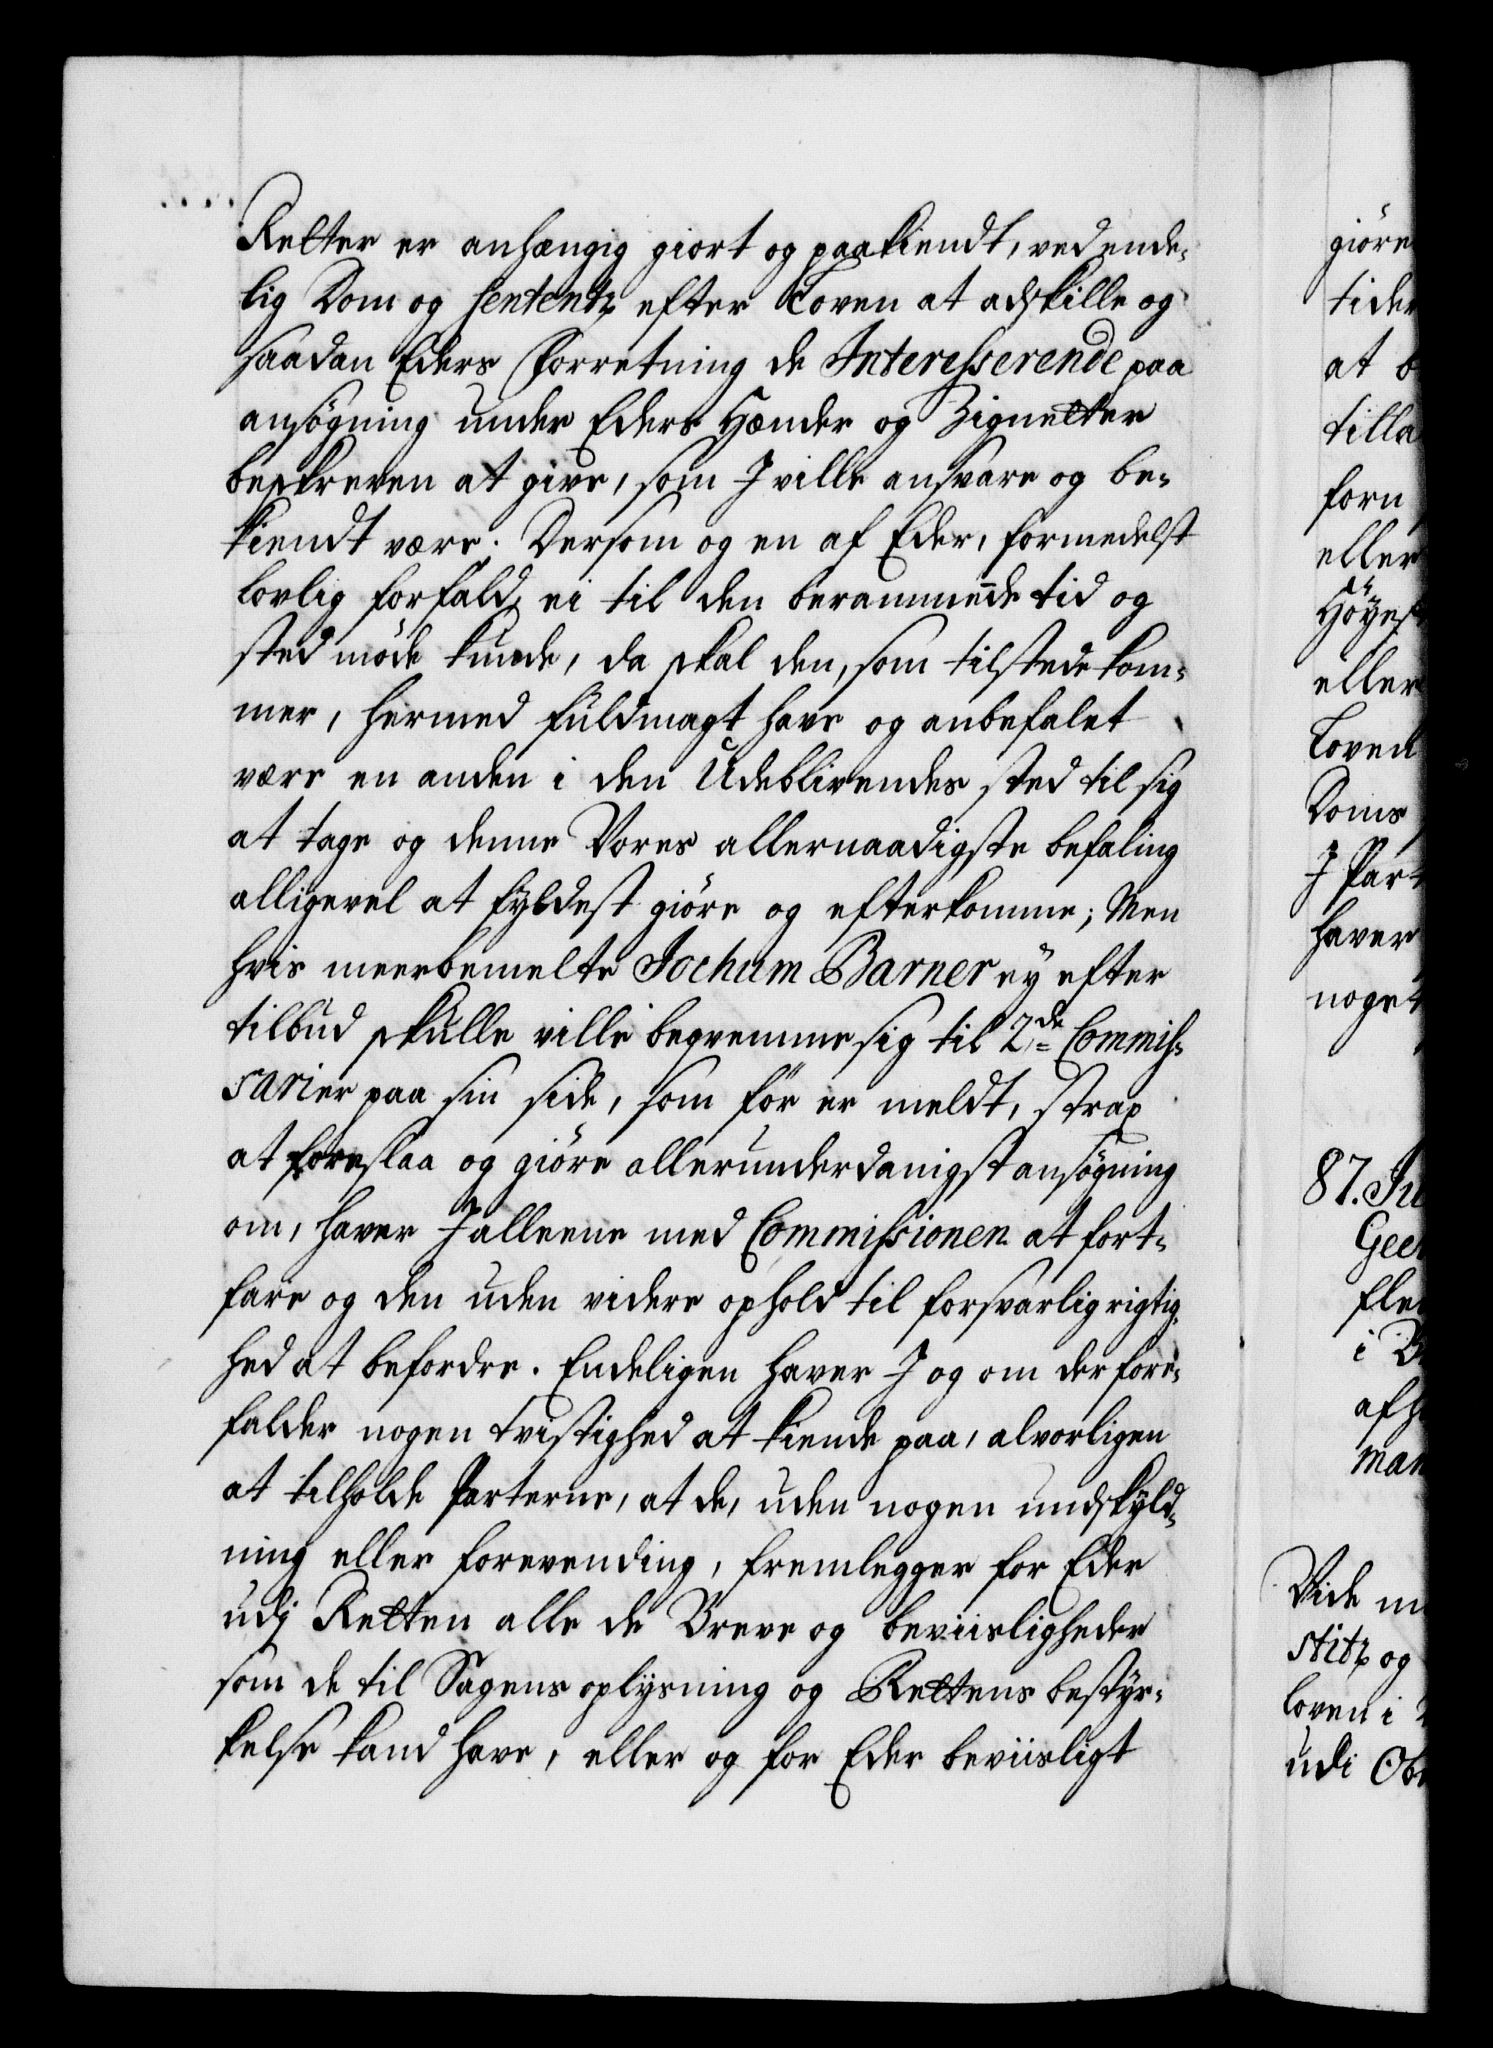 Retter er anhængig giort og paakiendt, ved ende-
lig Dom og Sententz efter Loven at adskille og
saadan Eders Forretning de Interesserende paa
ansøgning under Eders Hænder og Zignetter
beskreven at give, som I ville ansvare og be-
kiendt være. Dersom og en af Eder, formedelst
lovlig forfald, ei til den berammede tid og
sted møde kunde, da skal den, som tilstede kom-
mer, hermed fuldmagt have og anbefalet
være en anden i den Udeblivendes sted til sig
at tage og denne Vores allernaadigste befaling
alligevel at fyldest giøre og efterkomme; Men
hvis meerbemelte Jochum Barner ey efter
tilbud skulle ville beqvemme sig til 2de Commis-
sarier paa sin side, som før er meldt, strax
at foreslaa og giøre allerunderdanigst ansøgning
om, haver I alleene med Commissionen at fort-
fare og den uden videre ophold til forsvarlig rigtig-
hed at befordre. Endeligen haver I og om der fore-
falder nogen tvistighed at kiende paa, alvorligen
at tilholde Parterne, at de, uden nogen undskyld-
ning eller forevending, fremlegger for Eder
udj Retten alle de Breve og beviisligheder
som de til Sagens oplysning og Rettens bestyr-
kelse kand have, eller og for Eder beviisligt
giøre
tider
at
tilla
forn
eller
Høyest
eller
Loven
Doms
I Part
haver
noget
87.
i
Vide
stitz og
loven i
udi